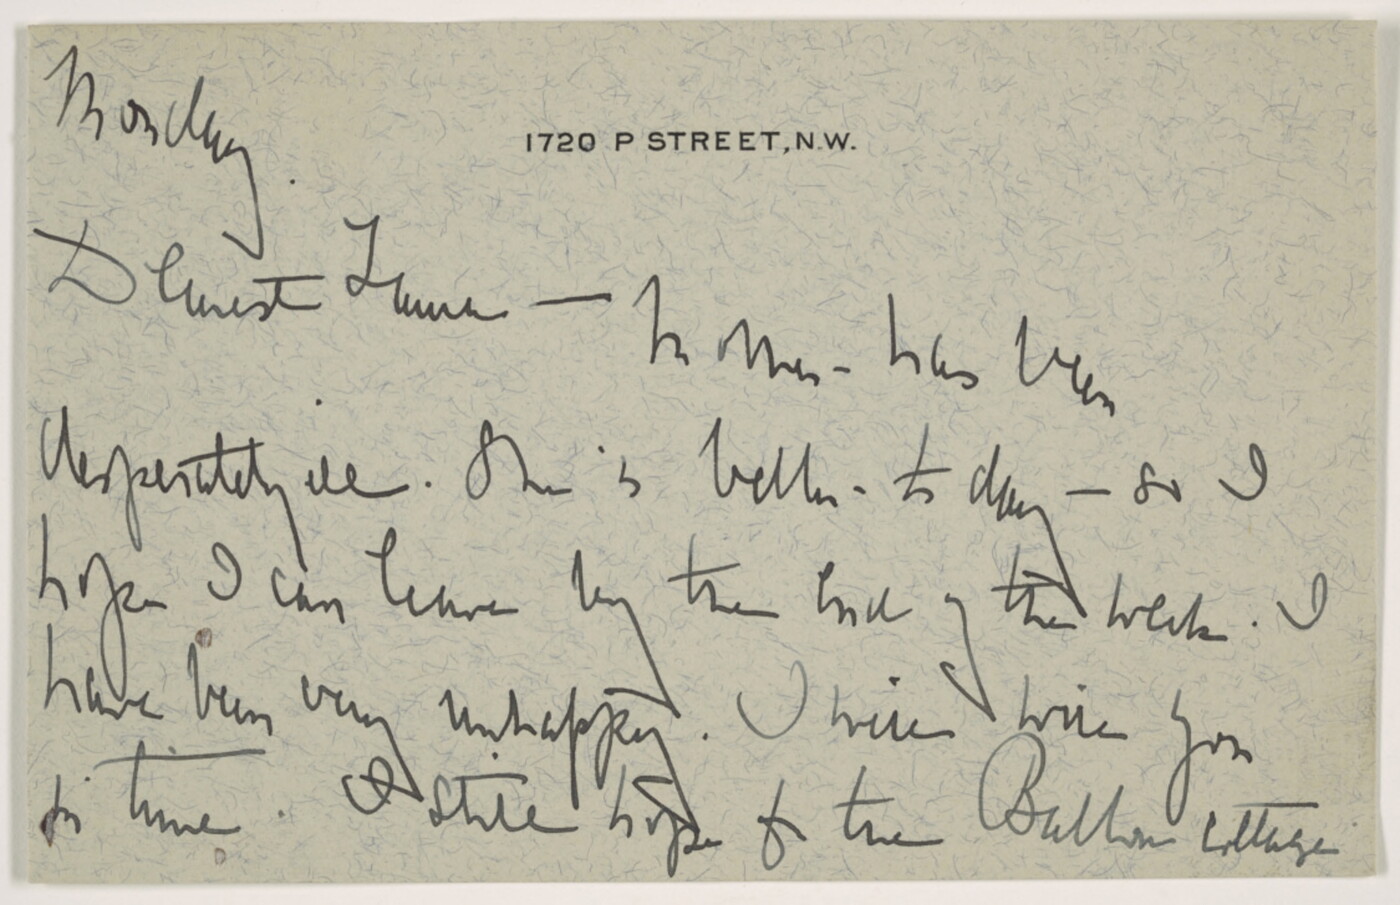 Monday.
1720 P STREET, N.W.
Dearest Laura — Mother has been
desperately ill. She is better today — so I
hope I can leave by the end of the week. I
have been very unhappy. I will wire you
in time. I still hope for the cottage